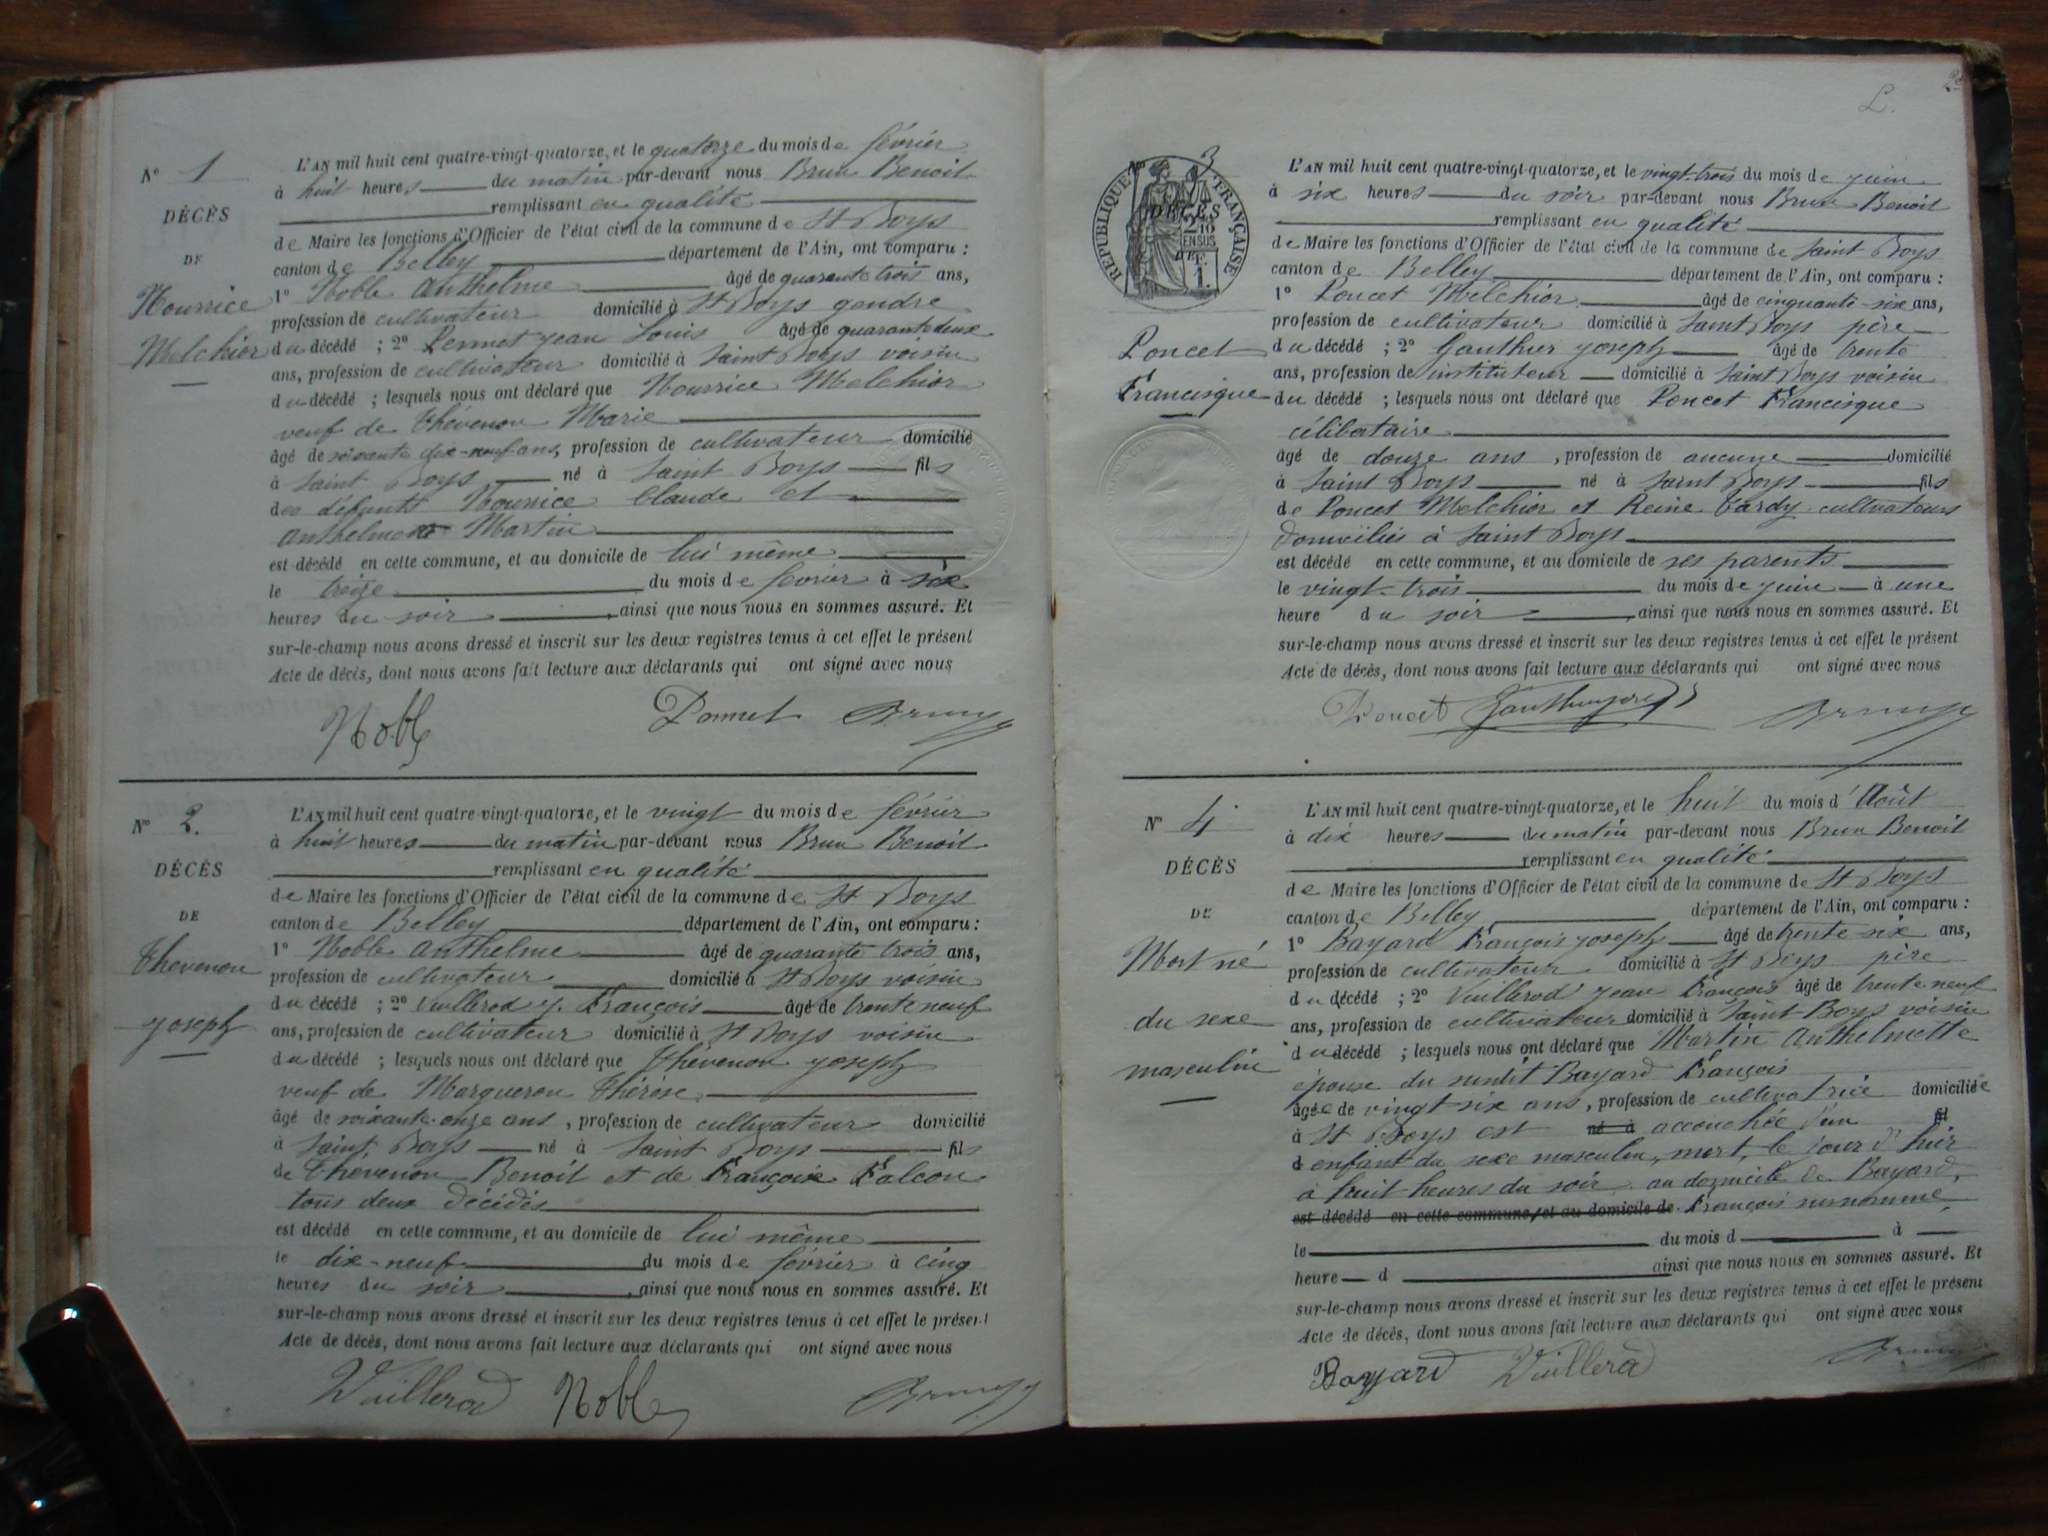 N° 1
DÉCÈS
DE
Nourrice
Melchior
L'AN mil huit cent quatre-vingt-quatorze, et le quatorze du mois de février
à huit heures du matin par-devant nous Brun Benoit
remplissant en qualité
de Maire les fonctions d'Officier de l'état civil de la commune de St Boys
canton de Belley département de l'Ain, ont comparu :
1° Noble Anthelme âgé de quarante trois ans,
profession de cultivateur domicilié à St Boys gendre
du décédé ; 2° Pennet Jean Louis âgé de quarante deux
ans, profession de cultivateur domicilié à Saint Boys voisin
du décédé ; lesquels nous ont déclaré que Nourrice Melchior
veuf de Thévenon Marie
âgé de soixante dix-neuf ans, profession de cultivateur domicilié
à Saint Boys né à Saint Boys fils
des défunts Nourrice Claude et
Anthelmette Martin
est décédé en cette commune, et au domicile de lui même
le treize du mois de février à six
heures du soir, ainsi que nous nous en sommes assuré. Et
sur-le-champ nous avons dressé et inscrit sur les deux registres tenus à cet effet le présent
Acte de décès, dont nous avons fait lecture aux déclarants qui ont signé avec nous
Noble Ponnet Brun
N° 2.
DÉCÈS
DE
Thevenon
Joseph
L'AN mil huit cent quatre-vingt-quatorze, et le vingt du mois de février
à huit heures du matin par-devant nous Brun Benoit
remplissant en qualité
de Maire les fonctions d'Officier de l'état civil de la commune de St Boys
canton de Belley département de l'Ain, ont comparu :
1° Noble Anthelme âgé de quarante trois ans,
profession de cultivateur domicilié à St Boys voisin
du décédé ; 2° Vuillerod J. François âgé de trente neuf
ans, profession de cultivateur domicilié à St Boys voisin
du décédé ; lesquels nous ont déclaré que Thévenon Joseph
veuf de Marqueron Thérèse
âgé de soixante-onze ans, profession de cultivateur domicilié
à Saint Boys né à Saint Boys fils
de Thevenon Benoit et de Françoise Falcon
tous deux décédés
est décédé en cette commune, et au domicile de lui même
le dix-neuf du mois de février à cinq
heures du soir, ainsi que nous nous en sommes assuré. Et
sur-le-champ nous avons dressé et inscrit sur les deux registres tenus à cet effet le présent
Acte de décès, dont nous avons fait lecture aux déclarants qui ont signé avec nous
Vuillerod Noble Brun
L.
N° 3
RÉPUBLIQUE FRANÇAISE
DÉCÈS
2/10
EN SUS
DE
F.
1.
Poncet
Francisque
L'AN mil huit cent quatre-vingt-quatorze, et le vingt-trois du mois de juin
à six heures du soir par-devant nous Brun Benoit
remplissant en qualité
de Maire les fonctions d'Officier de l'état civil de la commune de Saint Boys
canton de Belley département de l'Ain, ont comparu :
1° Poncet Melchior âgé de cinquante-six ans,
profession de cultivateur domicilié à Saint Boys père
du décédé ; 2° Gauthier Joseph âgé de trente
ans, profession de instituteur domicilié à Saint Boys voisin
du décédé ; lesquels nous ont déclaré que Poncet Francisque
célibataire
âgé de douze ans, profession de aucune domicilié
à Saint Boys né à Saint Boys fils
de Poncet Melchior et Reine Tardy cultivateurs
domiciliés à Saint Boys
est décédé en cette commune, et au domicile de ses parents
le vingt-trois du mois de juin à une
heure du soir, ainsi que nous nous en sommes assuré. Et
sur-le-champ nous avons dressé et inscrit sur les deux registres tenus à cet effet le présent
Acte de décès, dont nous avons fait lecture aux déclarants qui ont signé avec nous
Poncet Gauthier Brun
N° 4
DÉCÈS
DE
Mort né
du sexe
masculin
L'AN mil huit cent quatre-vingt-quatorze, et le huit du mois d'Août
à dix heures du matin par-devant nous Brun Benoit
remplissant en qualité
de Maire les fonctions d'Officier de l'état civil de la commune de St Boys
canton de Belley département de l'Ain, ont comparu :
1° Bayard François Joseph âgé de trente-six ans,
profession de cultivateur domicilié à St Boys père
du décédé ; 2° Vuillerod Jean François âgé de trente neuf
ans, profession de cultivateur domicilié à Saint-Boys voisin
du décédé ; lesquels nous ont déclaré que Martin Anthelmette
épouse du susdit Bayard François
âgée de vingt-six ans, profession de cultivatrice domiciliée
à St Boys est né à accouchée d'un fil
d enfant du sexe masculin, mort, le jour d'hier
à huit heures du soir au domicile de Bayard,
est décédé en cette commune, et au domicile de François susnommé
le du mois d à
heure d ainsi que nous nous en sommes assuré. Et
sur-le-champ nous avons dressé et inscrit sur les deux registres tenus à cet effet le présent
Acte de décès, dont nous avons fait lecture aux déclarants qui ont signé avec nous
Bayard Vuillerod Brun